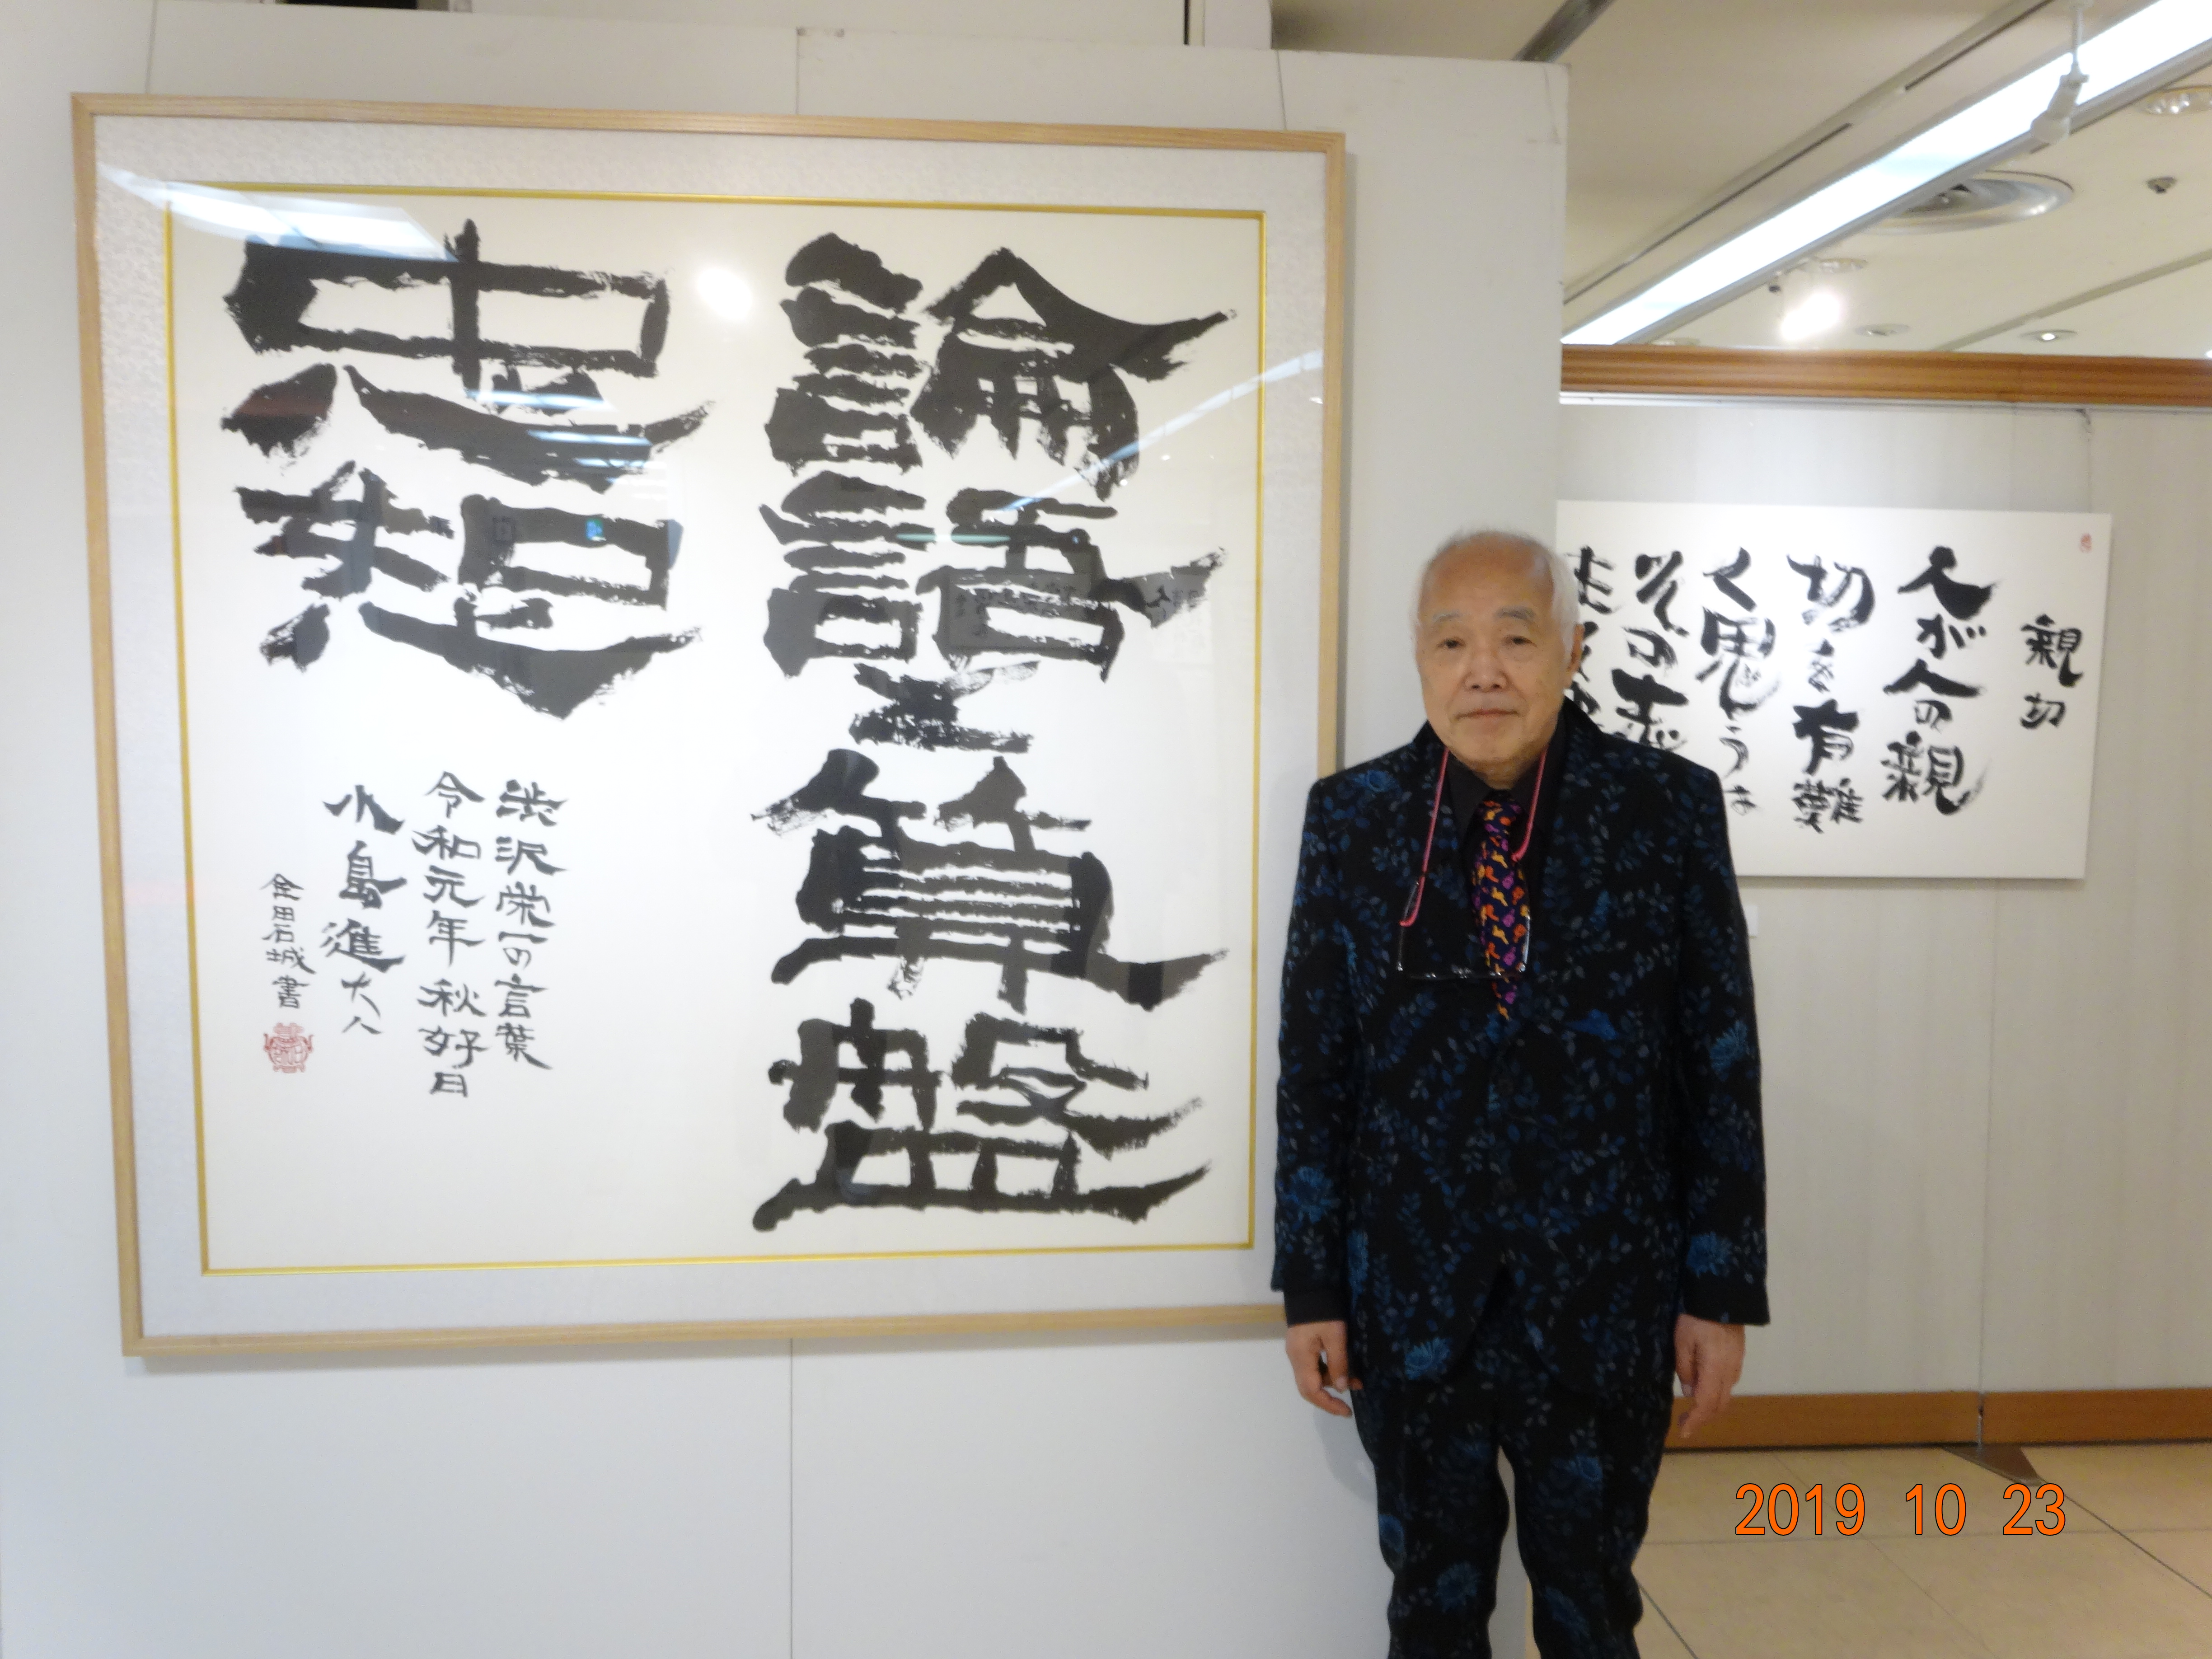 論語と算盤
忠恕
渋沢栄一の言葉
令和元年秋好日
小島進大人
金田石城書
親切
人が人の親
切を有難
く思うは
その志
2019 10 23